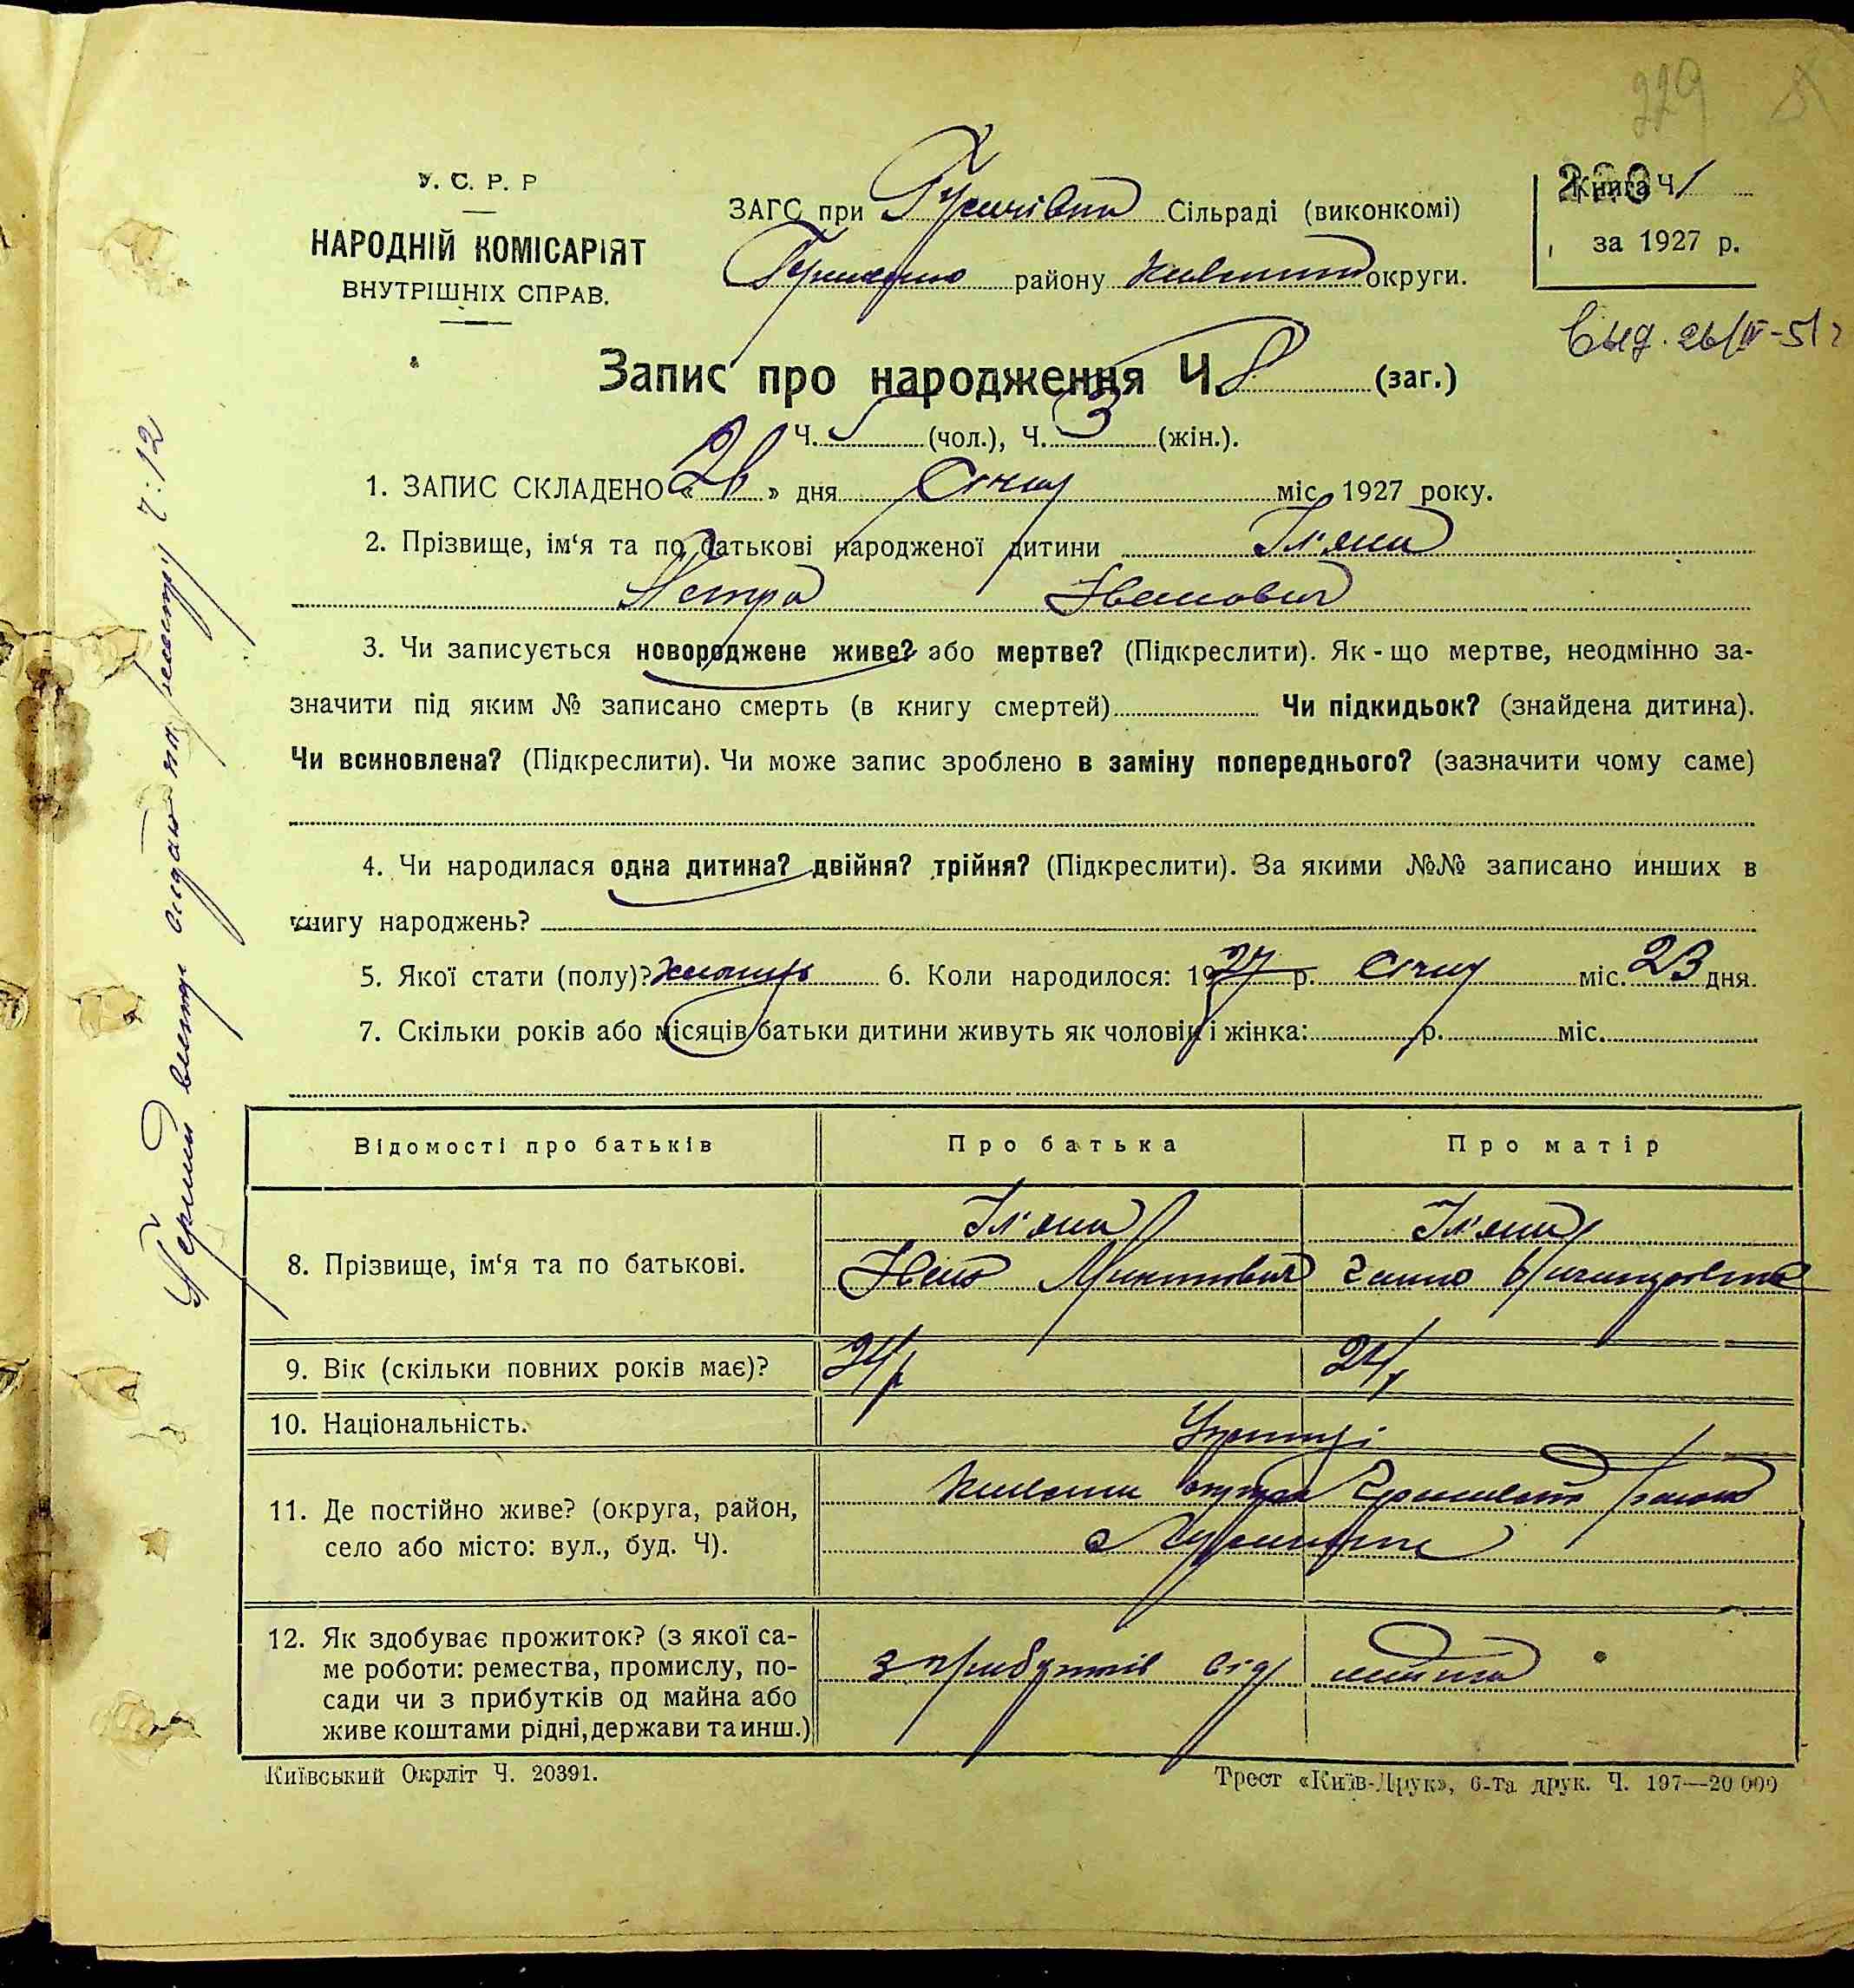 229
У. С. Р. Р
НАРОДНІЙ КОМІСАРІЯТ
ВНУТРІШНІХ СПРАВ.
ЗАГС при Сільраді (виконкомі)
району округи.
Книга Ч 1
за 1927 р.
Выд. 26/IV-51 г
Запис про народження Ч. 8 (заг.)
Ч. 5 (чол.), Ч. 3 (жін.).
1. ЗАПИС СКЛАДЕНО « 26 » дня Січня міс. 1927 року.
2. Прізвище, ім‘я та по батькові народженої дитини
Петра Іванович
3. Чи записується новороджене живе? або мертве? (Підкреслити). Як - що мертве, неодмінно за-
значити під яким № записано смерть (в книгу смертей) Чи підкидьок? (знайдена дитина).
Чи всиновлена? (Підкреслити). Чи може запис зроблено в заміну попереднього? (зазначити чому саме)
4. Чи народилася одна дитина? двійня? трійня? (Підкреслити). За якими №№ записано инших в
книгу народжень?
5. Якої стати (полу)? хлопець 6. Коли народилося: 1927 р. Січня міс. 23 дня.
7. Скільки років або місяців батьки дитини живуть як чоловік і жінка: р. міс.
Відомості про батьків Про батька Про матір
8. Прізвище, ім‘я та по батькові.
Іван Микитович Ганна
9. Вік (скільки повних років має)? 24 р 24 р
10. Національність. Українці
11. Де постійно живе? (округа, район,
село або місто: вул., буд. Ч).
12. Як здобуває прожиток? (з якої са-
ме роботи: ремества, промислу, по-
сади чи з прибутків од майна або
живе коштами рідні, держави та инш.)
з прибутків від
Київський Окрліт Ч. 20391.
Трест «Київ-Друк», 6-та друк. Ч. 197—20 000